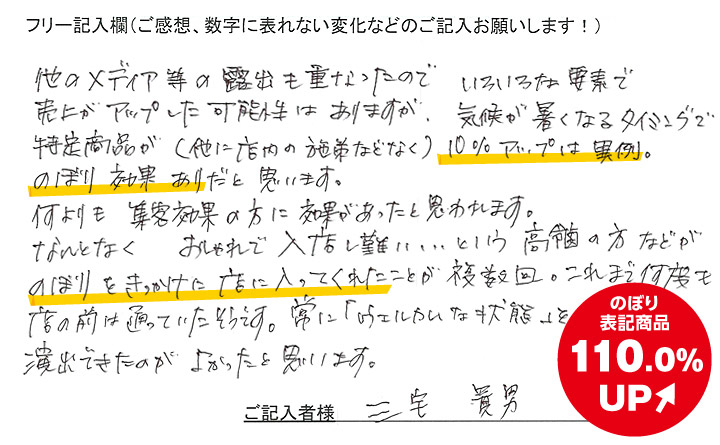 フリー記入欄(ご感想、数字に表れない変化などのご記入お願いします!)
他のメディア等の露出も重なったので いろいろな要素で
売上がアップした可能性はありますが、気候が暑くなるタイミングで
特定商品が(他に店内の施策などなく)10%アップは異例。
のぼり効果ありだと思います。
何よりも 集客効果の方に効果があったと思われます。
なんとなく おしゃれで入店し難い…という高齢の方などが
のぼりをきっかけに店に入ってくれたことが複数回。これまで何度も
店の前は通っていたそうです。常に「ウェルカムな状態」を
演出できたのがよかったと思います。
ご記入者様 三宅
のぼり
表記商品
110.0%
UP